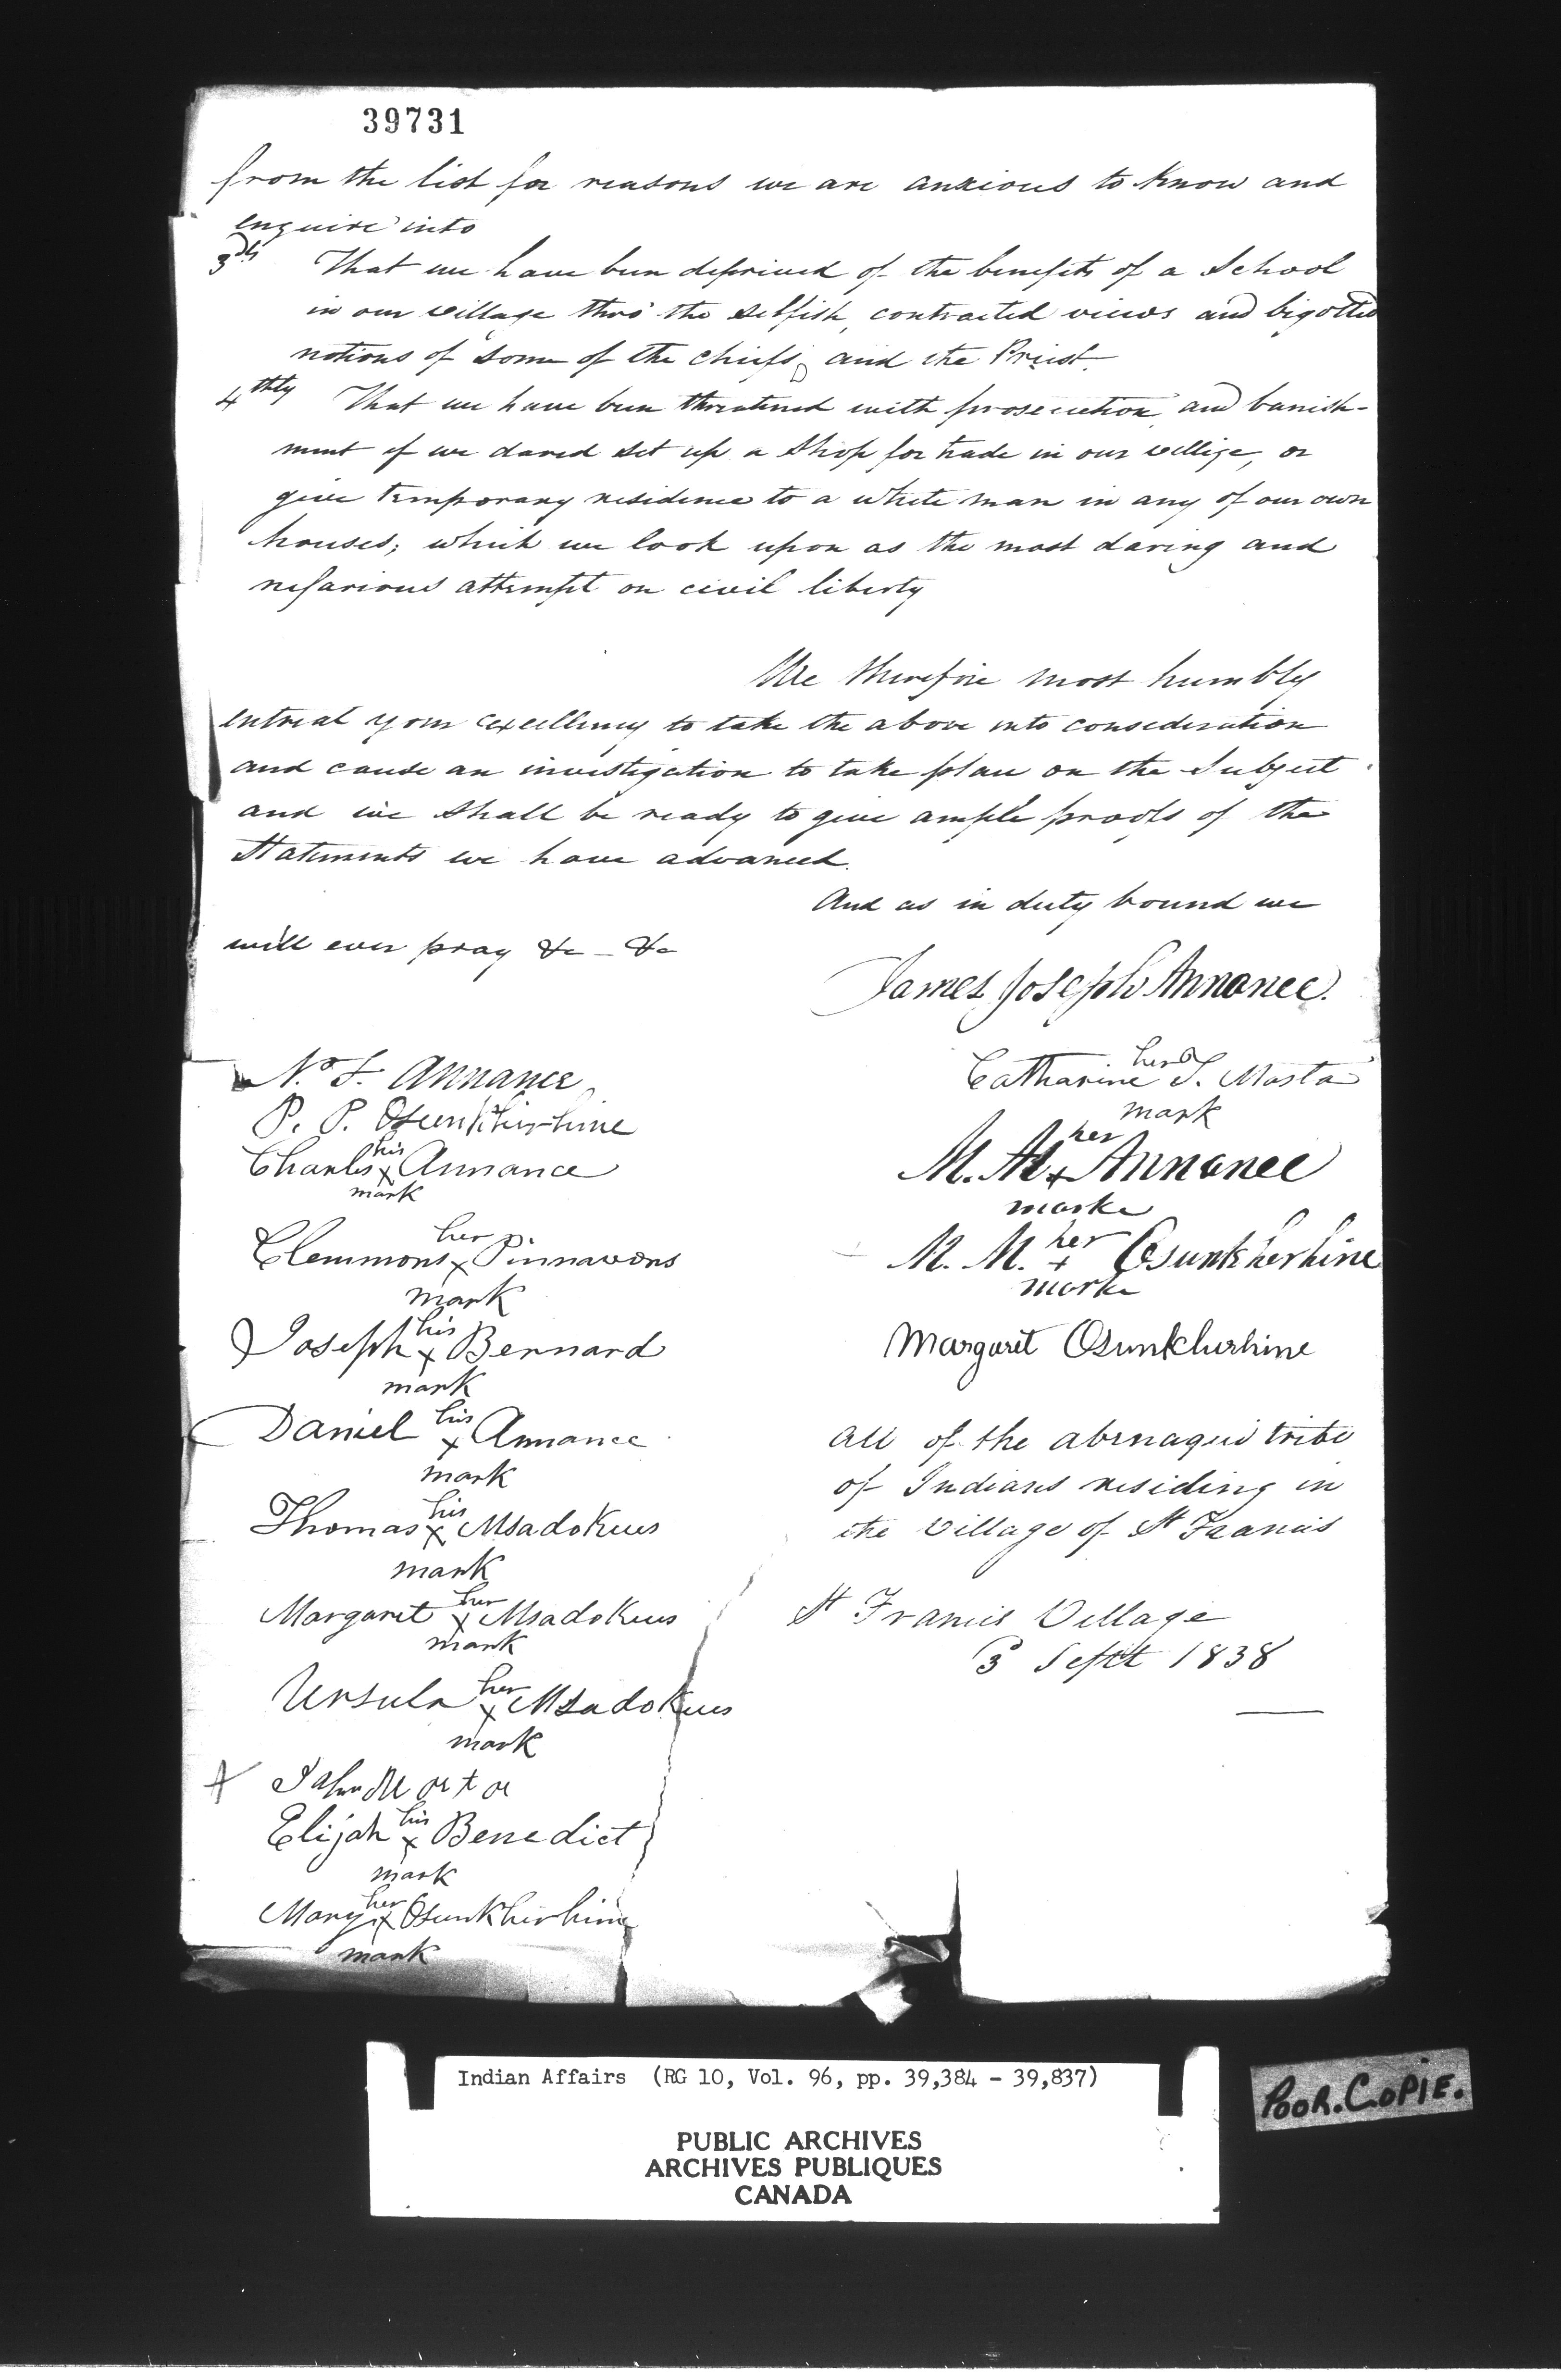 39731
from the list for reasons we are anxious to know and
enquire into
3dly That we have been deprived of the benefits of a School
in our village thro' the selfish, contracted views and bigotted
notions of some of the chiefs, and the Priest.
4thly That we have been threatened with prosecution and banish-
ment if we dared set up a Shop for trade in our villige, or
give temporary residence to a white man in any of our own
houses; which we look upon as the most daring and
nefarious attempt on civil liberty
We therefore most humbly
entreat your excellency to take the above into consideration
and cause an investigation to take place on the Subject
and we shall be ready to give ample proofs of the
Statements we have advanced.
And as in duty bound we
will ever pray &c - &c
James Joseph Annance.
N. F. Annance
P. P. Osunkhirhine
Charles his x mark Annance
Clemmons her x mark Pinnawons
Joseph his x mark Bernard
Daniel his x mark Annance
Thomas his x mark Msadokues
Margaret her x mark Msadokues
Ursula her x mark Msadokues
John Masta
Elijah his x mark Benedict
Mary her x mark Osunkhirhine
Catharine her mark S. Masta
M. M. her + marke Annance
M. M. her + marke Osunkherhine
Margaret Osunkhirhine
All of the abenaqui tribe
of Indians residing in
the village of St Francis
St Francis Village
3 Sept 1838
Indian Affairs (RG 10, Vol. 96, pp. 39,384 - 39,837)
PUBLIC ARCHIVES
ARCHIVES PUBLIQUES
CANADA
POOR.COPIE.